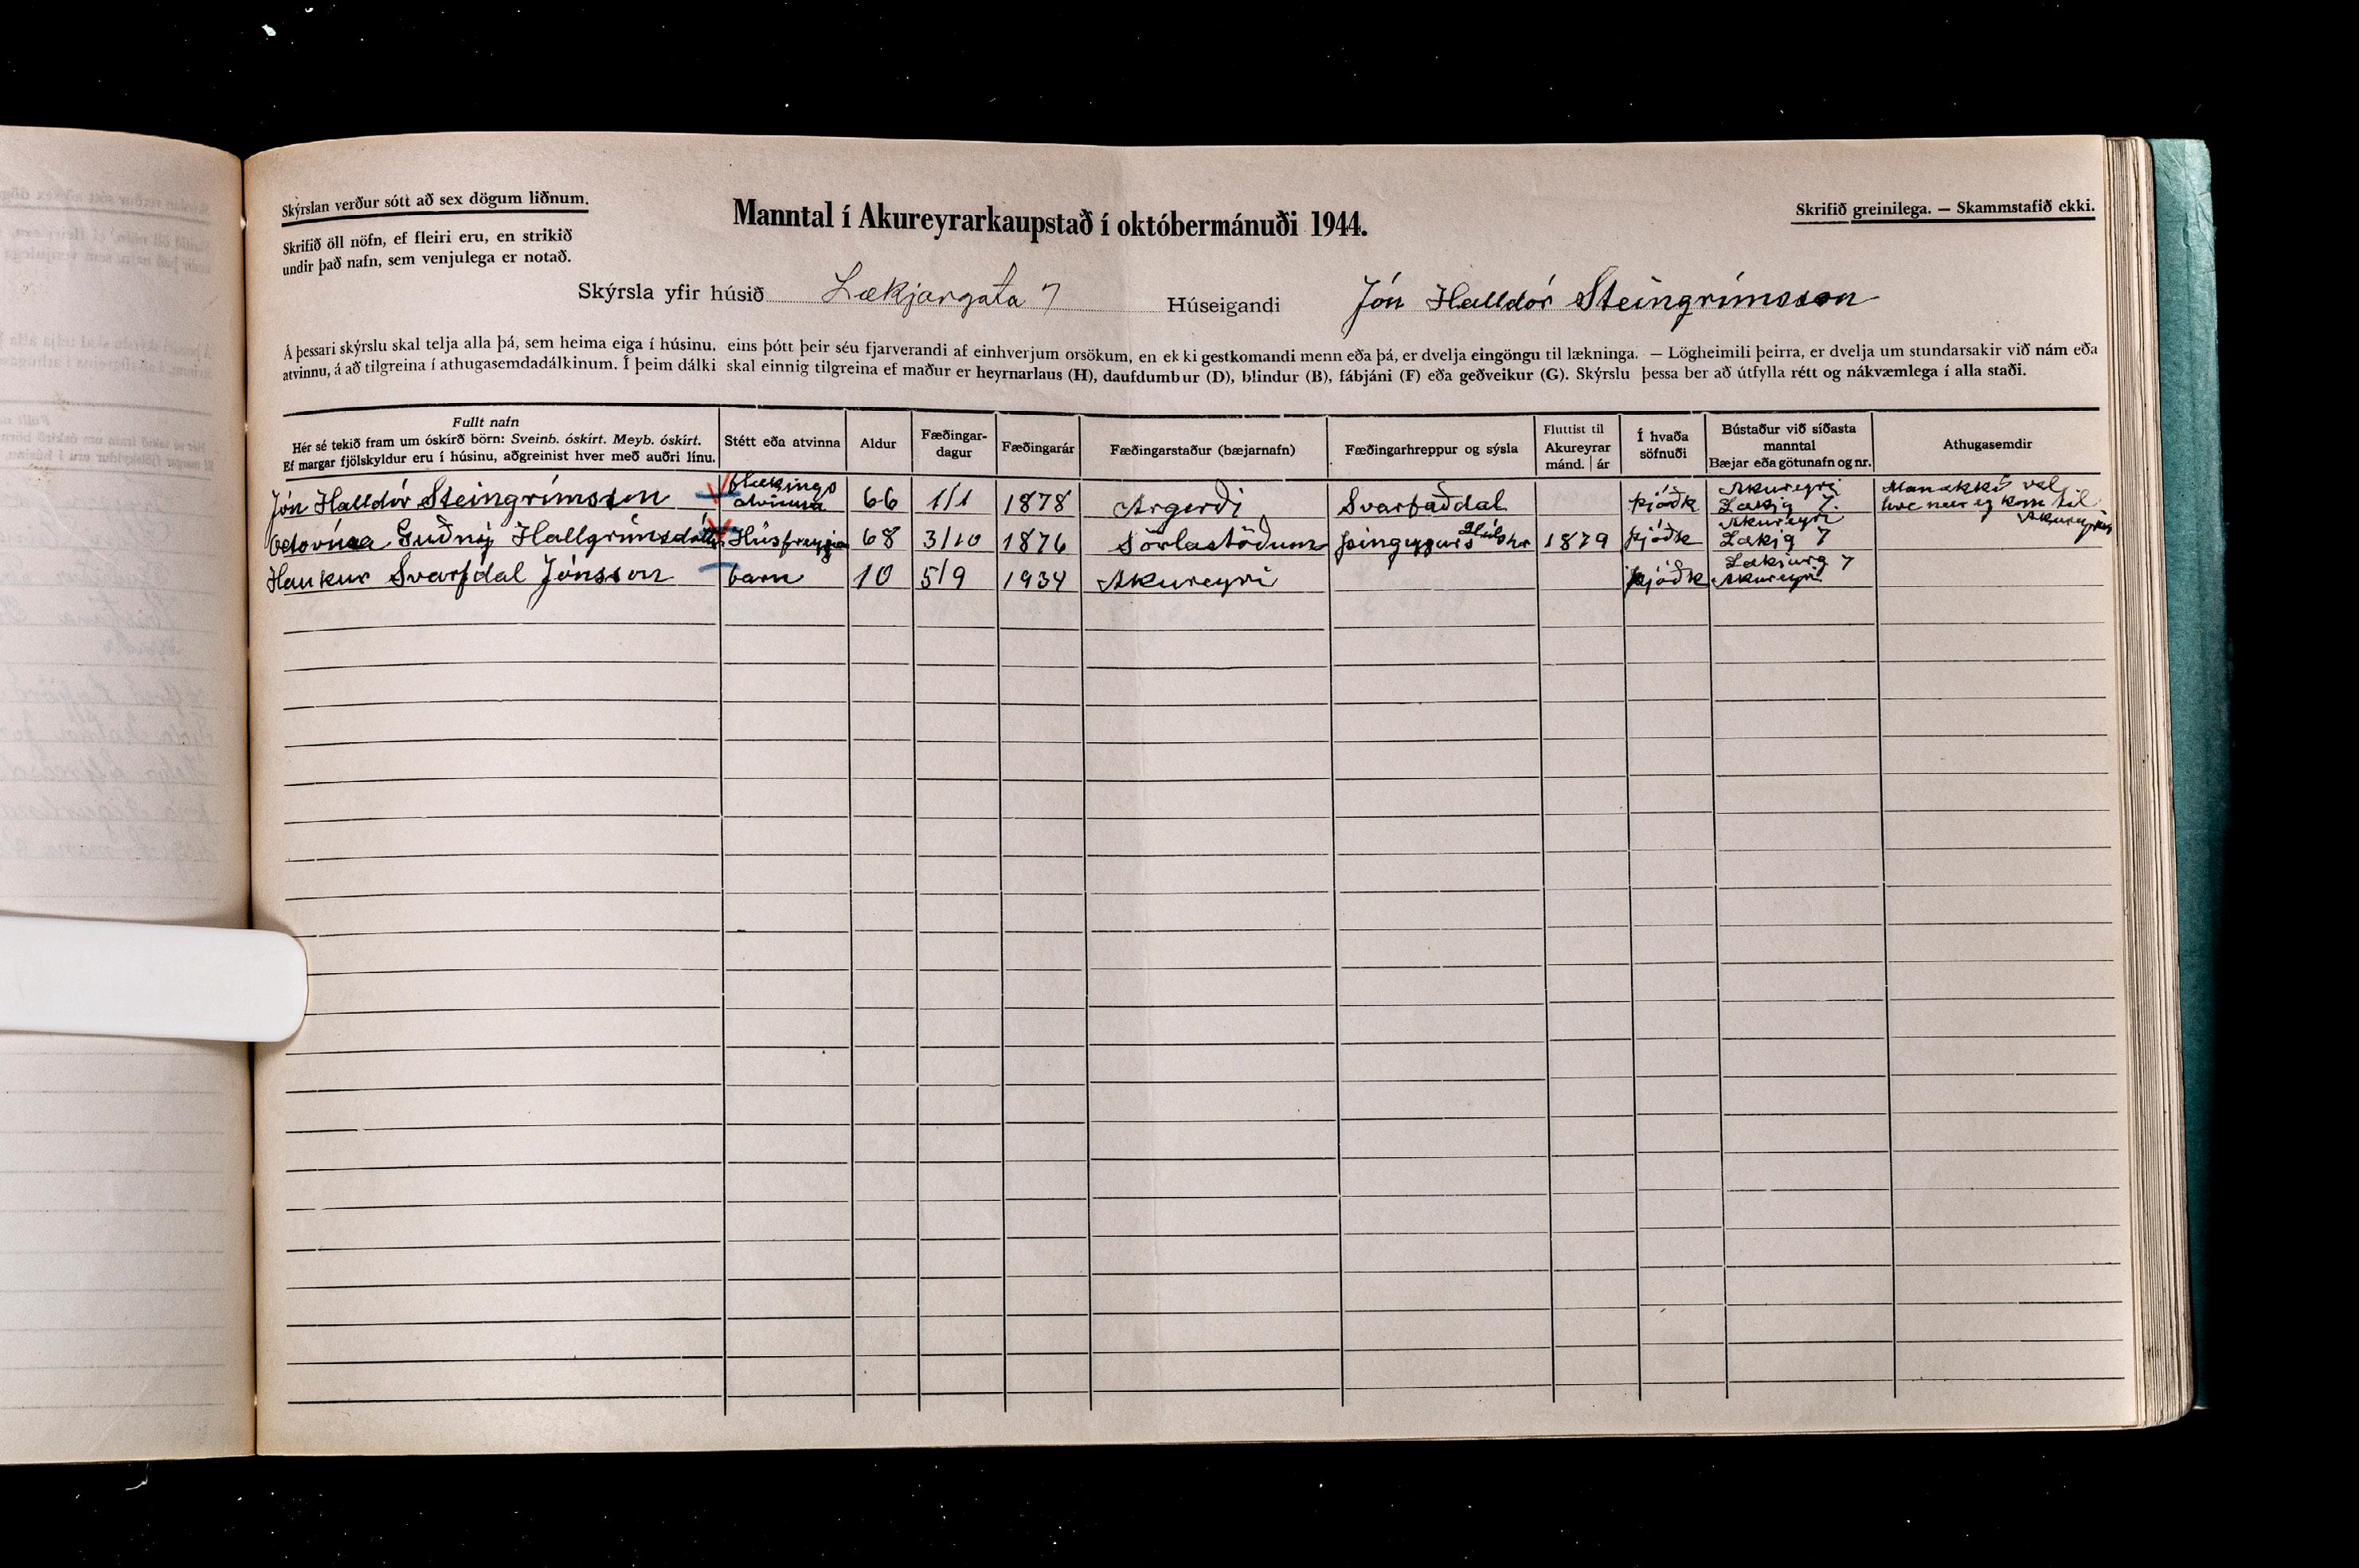 Skýrslan verður sótt að sex dögum liðnum.
Skrifið öll nöfn, ef fleiri eru, en strikið
undir það nafn, sem venjulega er notað.
Manntal í Akureyrarkaupstað í októbermánuði 1944.
Skrifið greinilega. — Skammstafið ekki.
Skýrsla yfir húsið Lækjargata 7 Húseigandi Jón Halldór Steingrímsson
Á þessari skýrslu skal telja alla þá, sem heima eiga í húsinu, eins þótt þeir séu fjarverandi af einhverjum orsökum, en ekki gestkomandi menn eða þá, er dvelja eingöngu til lækninga. — Lögheimili þeirra, er dvelja um stundarsakir við nám eða
atvinnu, á að tilgreina í athugasemdadálkinum. Í þeim dálki skal einnig tilgreina ef maður er heyrnarlaus (H), daufdumbur (D), blindur (B), fábjáni (F) eða geðveikur (G). Skýrslu þessa ber að útfylla rétt og nákvæmlega í alla staði.
Fullt nafn
Hér sé tekið fram um óskírð börn: Sveinb. óskírt. Meyb. óskírt.
Ef margar fjölskyldur eru í húsinu, aðgreinist hver með auðri línu.
Stétt eða atvinna
Aldur
Fæðingar-
dagur
Fæðingarár
Fæðingarstaður (bæjarnafn)
Fæðingarhreppur og sýsla
Fluttist til
Akureyrar
mánd. | ár
Í hvaða
söfnuði
Bústaður við síðasta
manntal
Bæjar eða götunafn og nr.
Athugasemdir
Jón Halldór Steingrímsson atvinna 66 1/1 1878 Argerði Svarfaddal þjóðk Akureyri Lækjg 7. Man ekki vel
hve nær eg kom til
Akureyrar
Guðný Hallgrímsdóttir Húsfreyja 68 3/10 1876 Sörlastöðum 1879 þjóðk Akureyri Lækjg 7
Haukur Svarfdal Jónsson barn 10 5/9 1934 Akureyri þjóðk Lækjarg 7 Akureyri